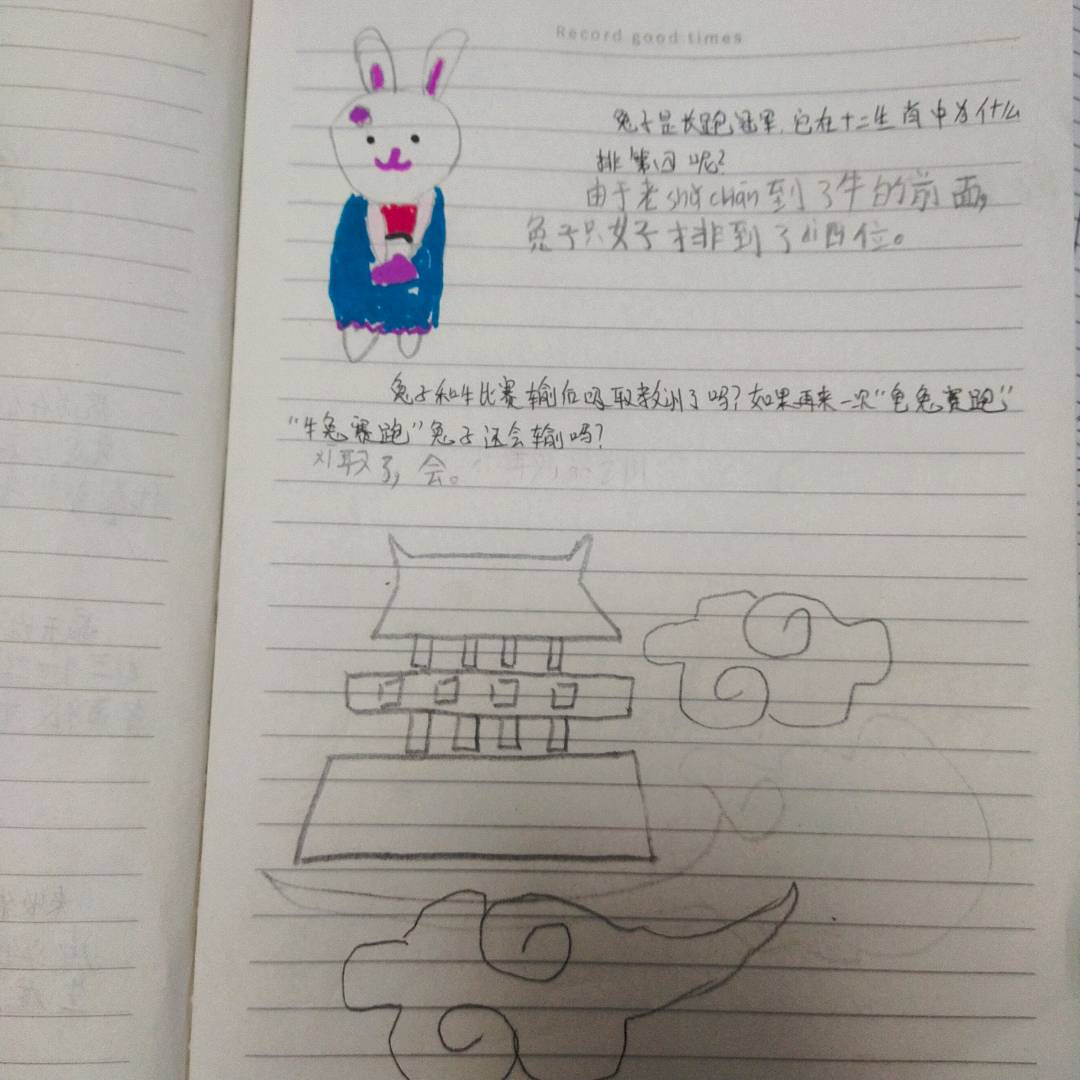 Record good times
兔子是长跑冠军,它在十二生肖中为什么
排第四呢?
由于老shǔ chuān到了牛的前面,
兔子只女子才非到了第四位。
兔子和牛比赛输后吸取教训了吗?如果再来一次“龟兔赛跑”
“牛兔赛跑”兔子还会输吗?
取了,会。